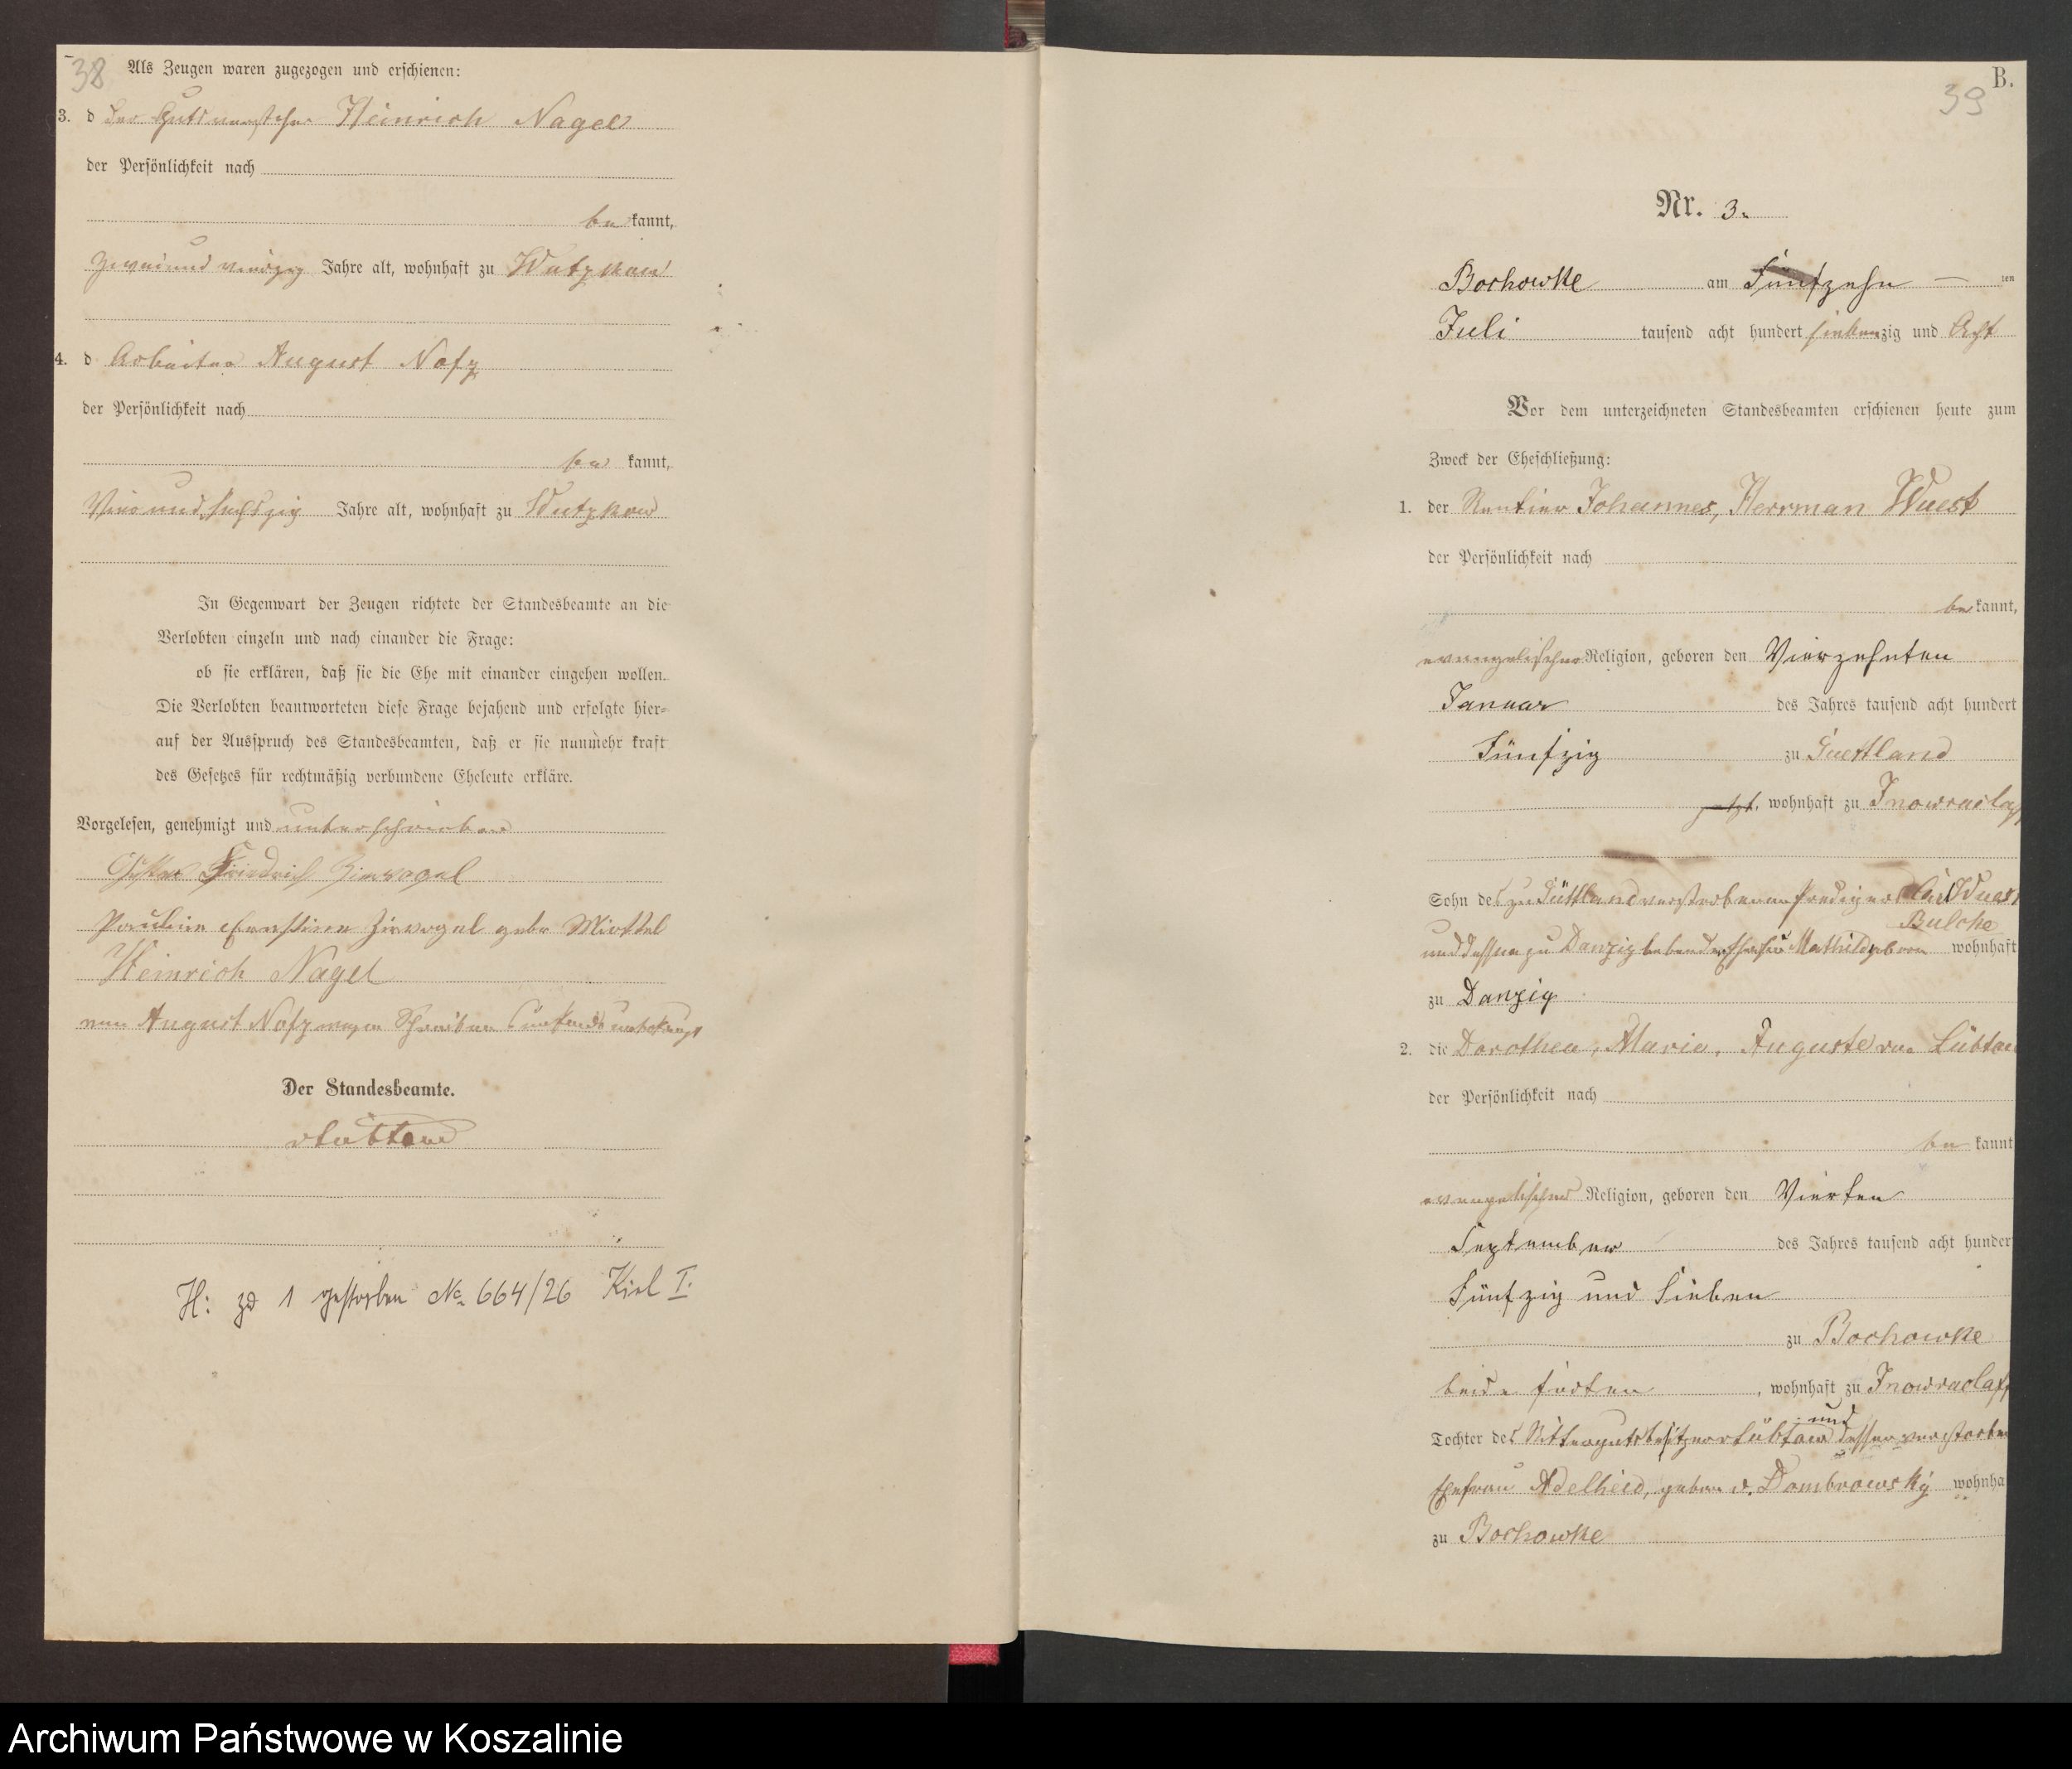 38 Als Zeugen waren zugezogen und erschienen:
3. d der Gutsvorsteher Heinrich Nagel
der Persönlichkeit nach
be kannt,
zwei und vierzig Jahre alt, wohnhaft zu Wutzkow
4. d Arbeiter August Nofz
der Persönlichkeit nach
be kannt,
Vier und sechszig Jahre alt, wohnhaft zu Wutzkow
In Gegenwart der Zeugen richtete der Standesbeamte an die
Verlobten einzeln und nach einander die Frage:
ob sie erklären, daß sie die Ehe mit einander eingehen wollen.
Die Verlobten beantworteten diese Frage bejahend und erfolgte hier-
auf der Ausspruch des Standesbeamten, daß er sie nunmehr kraft
des Gesetzes für rechtmäßig verbundene Eheleute erkläre.
Vorgelesen, genehmigt und unterschrieben
Friedrich Zirvogel
Pauline Ernstine Zirvogel gebr Mirttel
Heinrich Nagel
August Nofz wegen Schreibens
Der Standesbeamte.
vLübtow
H: zu 1 gestorben No 664/26 Kiel I.
B.
39
Nr. 3.
Borhowke am Fünfzehn ten
Juli tausend acht hundert siebenzig und Acht
Vor dem unterzeichneten Standesbeamten erschienen heute zum
Zweck der Eheschließung:
1. der Rentier Johannes, Herrman Wuest
der Persönlichkeit nach
be kannt,
evangelischer Religion, geboren den Vierzehnten
Januar des Jahres tausend acht hundert
Fünfzig zu Guettland
wohnhaft zu Inowraclaff
Sohn des zu Güttland verstorbenen Prediger Carl Wuest
Bulcke
und dessen zu Danzig lebender Ehefrau Mathilde geboren wohnhaft
zu Danzig
2. die Dorothea, Marie, Auguste von Lübtow
der Persönlichkeit nach
be kannt
evangelischer Religion, geboren den Vierten
September des Jahres tausend acht hunder
Fünfzig und Sieben
zu Borhowke
wohnhaft zu Inowraclaff
und
Tochter des Rittergutsbesitzer vLübtow dessen verstorben
Ehefrau Adelheid, geboren v. Dombrowsky wohnha
zu Borhowke
Archiwum Państwowe w Koszalinie